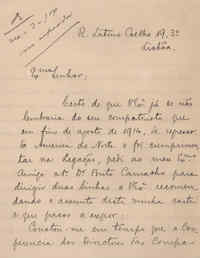 R. Latino Coelho 19, 3º
Lisboa.
Exmo
Senhor:
Certo de que V Exa já se não
lembraria do seu compatriota que
em fins de agosto de 1914, de regresso
da America do Norte o foi cumprimen-
tar na Legação, pedi ao meu
Amigo o Dr. Camacho para
dirigir duas linhas a V Exa recomen-
dando o assunto desta minha carta
e que passo a expor.
Constou-me em tempo que a Con-
ferencia dos